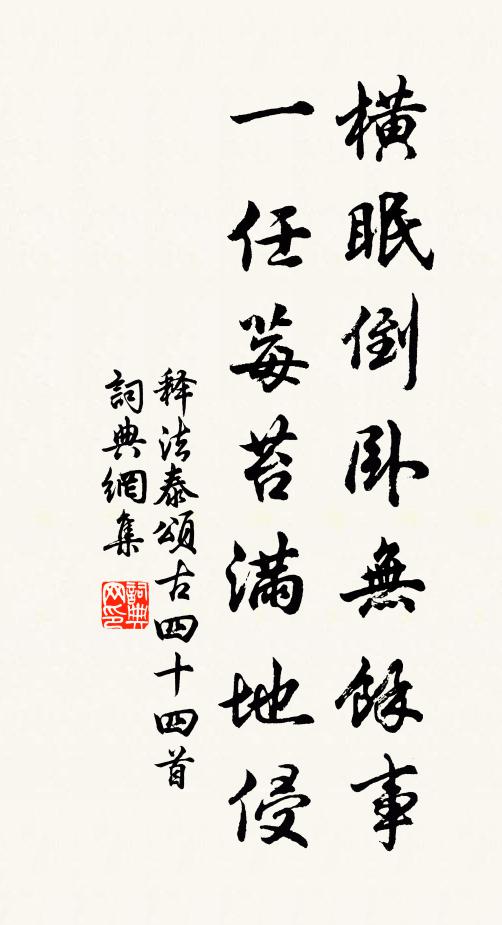 橫眠倒卧無餘事
一任莓苔滿地侵
释法泰頌古四十四首
詞典網集
詞典网印